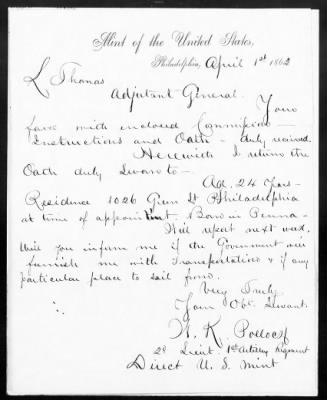 Mint of the United States,
Philadelphia, April 1st 1862
L Thomas
Adjutant General.
Your
favr with enclosed Commission -
Instructions and Oath - duly received
Herewith I return the
Oath duly Sworn to -
Age. 24 Years -
Residence 1026 Green St Philadelphia
at time of appointment. Born in Penna -
Will report next week.
Will you inform me if the Government will
furnish me with Transportation & if any
particular place to sail from.
Very Truly
Your Obt. Servant.
W. K. Pollock
2d Lieut. 1st Artillery Regiment
Direct U. S. Mint